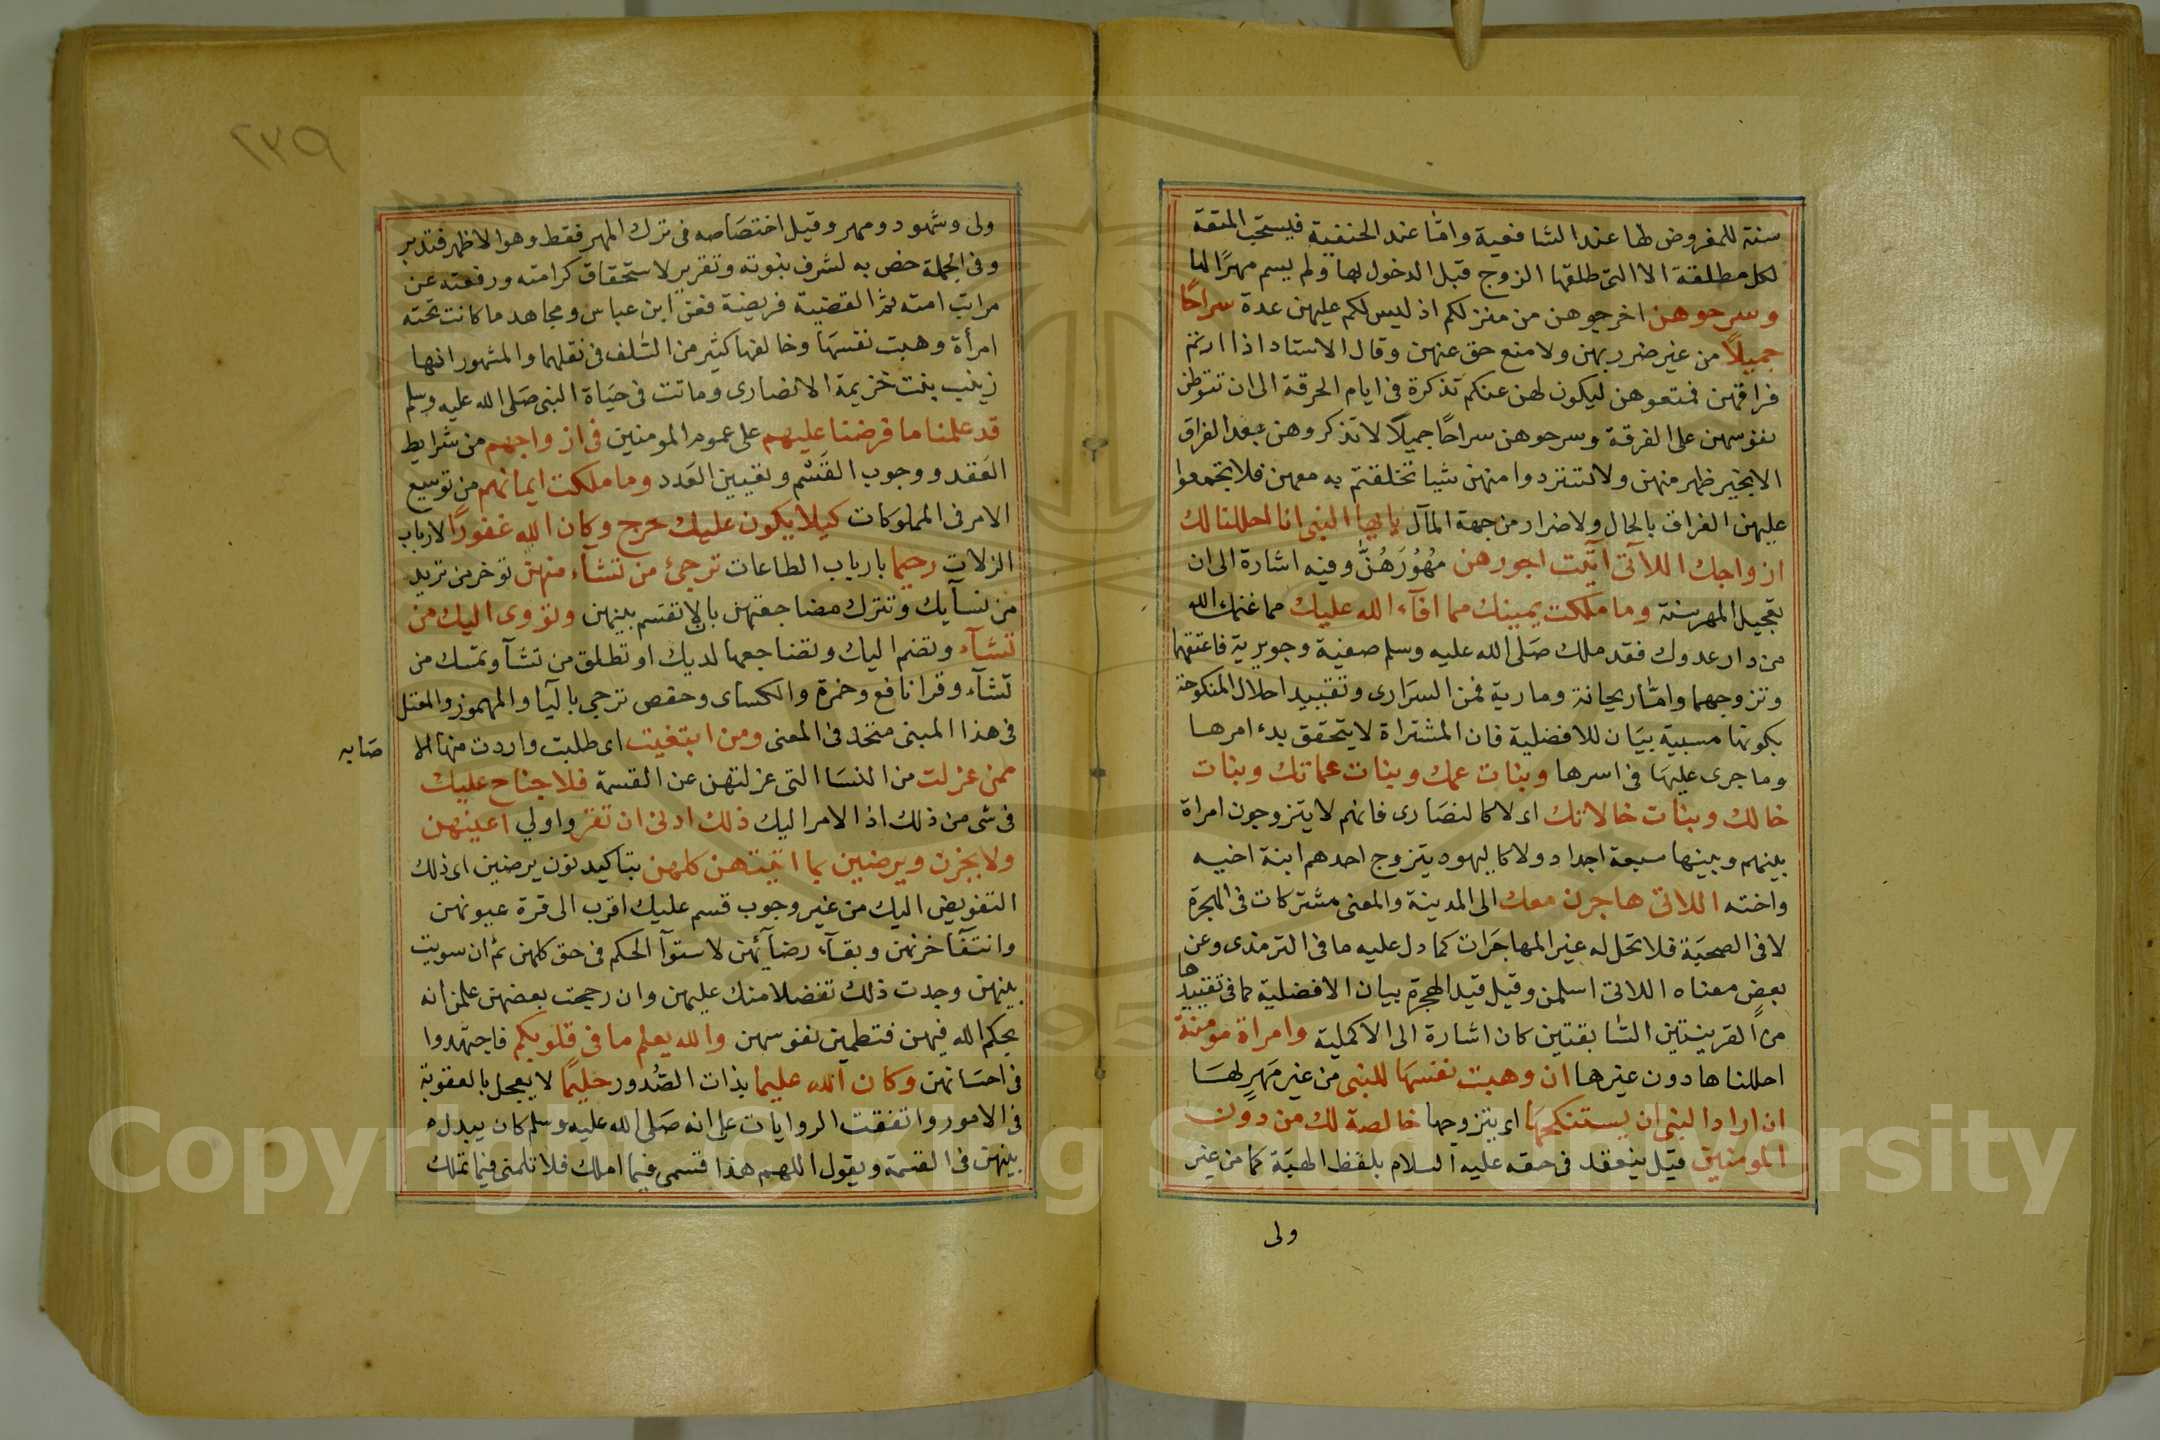 سنة للمفروض لها عند الشافعية واما عند الحنفية فيستحب المتعة
لكل مطلقة الا التي طلقها الزوج قبل الدخول بها ولم يسم مهرًا لها
وسرحوهن اخرجوهن من منزلكم اذ ليس لكم عليهن عدة سراحًا
جميلاً من غير ضرر بهن ولا منع حق عنهن وقال الاستاد اذا اردتم
فراقهن فمتعوهن ليكون لهن عنكم تذكرة في ايام الحرقة الى ان تتوطن
نفوسهن على الفرقة وسرحوهن سراحًا جميلًا لا تذكروهن بعد الفراق
الا بخير ظهر منهن ولا تستردوا منهن شيا تخلفتم به معهن فلا يجتمعوا
عليهن الفراق بالحال ولا ضرار من جهة المآل يايها النبي انا احللنا لك
ازواجك اللآتى آتيت اجورهن مُهُورَهُنَّ وفيه اشارة الى ان
تعجيل المهر سنة وما ملكت يمينك مما افآء الله عليك مما غنمك الله
من دار عدوك فقد ملك صَلى الله عليه وسلم صفية وجويرية فاعتقهما
وتزوجهما وامّا ريحانة ومارية فمن السرَارى وتقييد احلال المنكوحة
بكونها مسبية بيَان للافضلية فان المشتراة لا يتحقق بدء امرها
وما جرى عليهَا فى اسرها وبنات عمك وبنات عماتك وبنات
خالك وبنات خالاتك اى لا كالنصَارى فانهم لا يتزوجون امراة
بينهم وبينها سبعة اجداد ولا كاليهود يتزوج احدهم ابنة اخيه
واخته اللاتى هاجرن معك الى المدينة والمعنى مشتركات فى الهجرة
لا فى الصحبَة فلا تحل له غير المهاجَرات كما دل عليه ما فى الترمذى وعن
بعض معناه اللاتى اسلمن وقيل قيد الهجرة بيان الافضلية كما فى تقييدها
من القرينتين السّابقتين كان اشارة الى الاكملية وامراة مؤمنة
احللناها دون غيرها ان وهبت نفسهَا للنبى من غير مَهرٍ لهَا
ان اراد النبى ان يستنكحهَا اى يتزوجها خالصة لك من دون
المومنين قيل ينعقد فى حقه عليه السلام بلفظ الهبَة كما من غير
ولى
ولى وشهود ومهر وقيل اختصَاصه فى ترك المهر فقط وهو الاظهر فتدبر
وفى الجملة خص به لشرف نبوته وتقرير لاستحقاق كرامته ورفعته عن
مراتب امته ثم القضية فريضة فعن ابن عباس ومجاهد ما كانت تحته
امرأة وهبت نفسهَا وخالفها كثير من السّلف فى نقلهما والمشهور انها
زينب بنت خزيمة الانصارى وماتت فى حيَاة النبى صَلى الله عليه وسلم
قد علمنا ما فرضنا عليهم على عموم المومنين فى ازواجهم من شرايط
العَقد ووجوب القَسْم وتعيين العَدد وما ملكت ايمانهم من توسيع
الامر فى المملوكات كيلا يكون عليك حرج وكان الله غفورًا لارباب
الزلات رحيما بارباب الطاعات ترجئ من تشآء منهن توخر من تريد
من نسآيك وتترك مضاجعتهن بالا تقسَم بينهن وتؤوى اليك من
تشآء وتضم اليك وتضاجعها لديك او تطلق من تشآ وتمسك من
تشآء وقرا نافع وحمزة والكسَاى وحفص ترجى باليآ والمهموز والمعتل
فى هذا المبنى متحد فى المعنى ومن ابتغيت اى طلبت واردت منها الا
صَابه
ممن عزلت من النسَا التى عزلتهن عن القسمة فلا جناح عليك
فى شى من ذلك اذ الامر اليك ذلك ادنى ان تقر واولي اعينهن
ولا يحزن ويرضين بما اتيتهن كلهن بتاكيد نون يرضين اى ذلك
التفويض اليك من غير وجوب قسم عليك اقرب الى قرة عيونهن
وانتفآ حزنهن وبقآء رضآئهن لاستوآ الحكم فى حق كلهن ثم ان سويت
بينهن وجدت ذلك تفضلا منك عليهن وان رجحت بعضهن علمن انه
بحكم الله فيهن فتطمين نفوسهن والله يعلم ما فى قلوبكم فاجتهدوا
فى احسَانهن وكان الله عليما بذات الصُّدور حليمًا لا يعجل بالعقوبة
فى الامور واتفقت الروايات على انه صَلى الله عليه وسلم كان يبدله
بينهن فى القسمة ويقول اللهم هذا قسمى فيما املك فلا تلمنى فيما تملك
Copyright © King Saud University